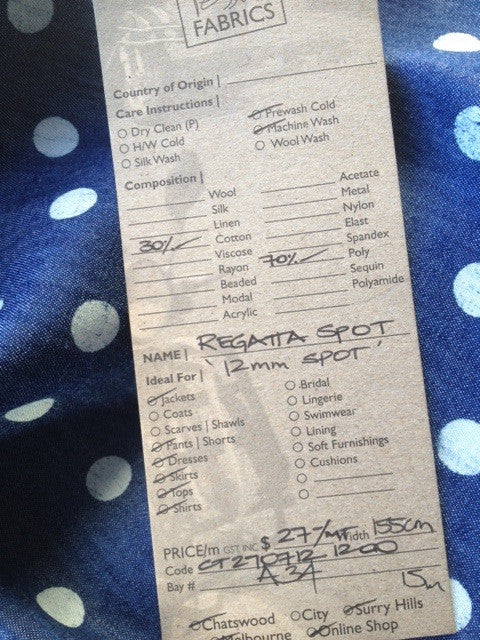 FABRICS
Country of Origin |
Care Instructions |
Dry Clean (P)
H/W Cold
Silk Wash
Prewash Cold
Machine Wash
Wool Wash
Composition |
Wool
Silk
Linen
30% Cotton
Viscose
Rayon
Beaded
Modal
Acrylic
Acetate
Metal
Nylon
Elast
Spandex
70% Poly
Sequin
Polyamide
NAME | REGATTA SPOT
'12mm SPOT'
Ideal For |
Jackets
Coats
Scarves | Shawls
Pants | Shorts
Dresses
Skirts
Tops
Shirts
Bridal
Lingerie
Swimwear
Lining
Soft Furnishings
Cushions
PRICE/m GST INC $ 27-/mt Width 155cm
Code CT270712-1200
Bay # A34
15m
Chatswood City Surry Hills
Melbourne Online Shop